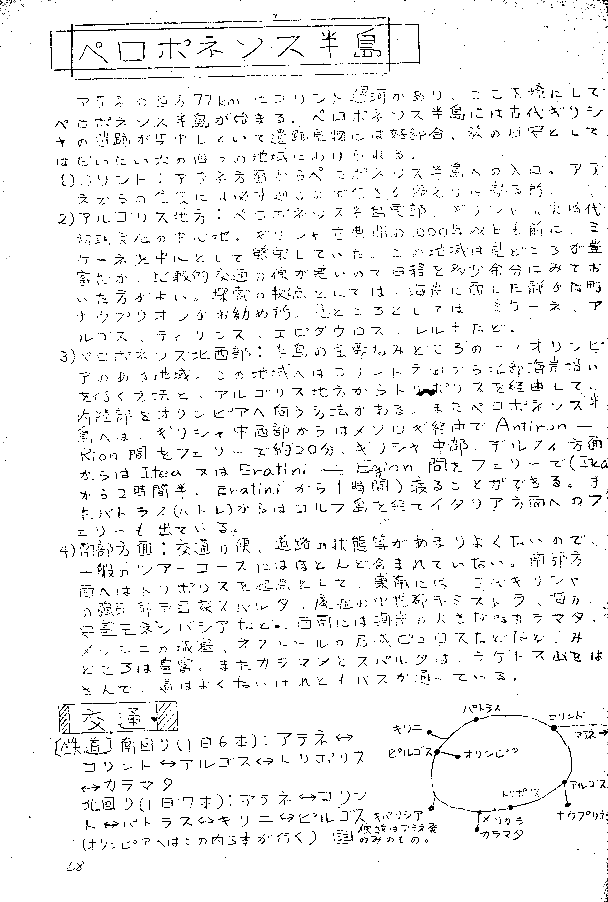 ペロポネソス半島
アテネの西方77kmにコリント運河があり、ここを境にして
ペロポネソス半島が始まる。ペロポネソス半島には古代ギリシ
ャの遺跡が集中していて遺跡見物には好都合、旅の目安として
はだいたい次の四つの地域にわけられる。
1)コリント:アテネ方面からペロポネソス半島への入口。アテ
2)アルゴリス地方:ペロポネソス半島東部、ギリシャ
中心地。ギリシャ古典期の1,000年以上も前に、ミ
ケーネを中心として繁栄していた。この地域は見どころが豊
富だが、比較的交通の便が悪いので日程を多少余分にみてお
いた方がよい。探索の拠点としては、海岸に面した静かな町
ナウプリオンがお勧め所。見どころとしては、ミケーネ、ア
ルゴス、ティリンス、エピダウロス、レルナなど。
3)ペロポネソス北西部:半島の主要なみどころの一つオリンピ
アのある地域。この地域へはコリント方面から北部海岸沿い
を行く方法と、アルゴリス地方からトリポリスを経由して、
内陸部をオリンピアへ向う方法がある。またペロポネソス半
島へは、ギリシャ中西部からはメソロギ経由でAntirion—
Rion間をフェリーで約20分、ギリシャ中部、デルフィ方面
からはItea又はEratini—Egion間をフェリーで(Itea
から2時間半、Eratiniから1時間)渡ることができる。ま
たパトライ(パトレ)からはコルフ島を経てイタリア方面へのフ
ェリーも出ている。
4)南部方面:交通の便、道路の状態等があまりよくないので、
一般のツアーコースにはほとんど含まれていない。南部方
面へはトリポリスを起点として、東南には、古代ギリシャ
の強力都市国家スパルタ、廃墟の中世都市ミストラ、海の
要塞モネンバシアなど。西南には海岸の大きな町カラマタ、
メッシニの城壁、ネストールの居城ピロスなどなどみ
どころは豊富。またカラマタとスパルタは、タイゲトス山をは
さんで、道はよくないけれどもバスが通っている。
交通
[鉄道]南回り(1日6本):アテネ↔
コリント↔アルゴス↔トリポリス
↔カラマタ
北回り(1日7本):アテネ↔コリン
ト↔パトラス↔キリニ↔ピルゴス
(オリンピアへはこの内5本が行く)
パトラス
コリント
キリニ
アテネ→
ピルゴス
オリンピア
アルゴス
トリポス
ナウプリオン
キパリシア
メリガラ
カラマタ
のみのもの。
68